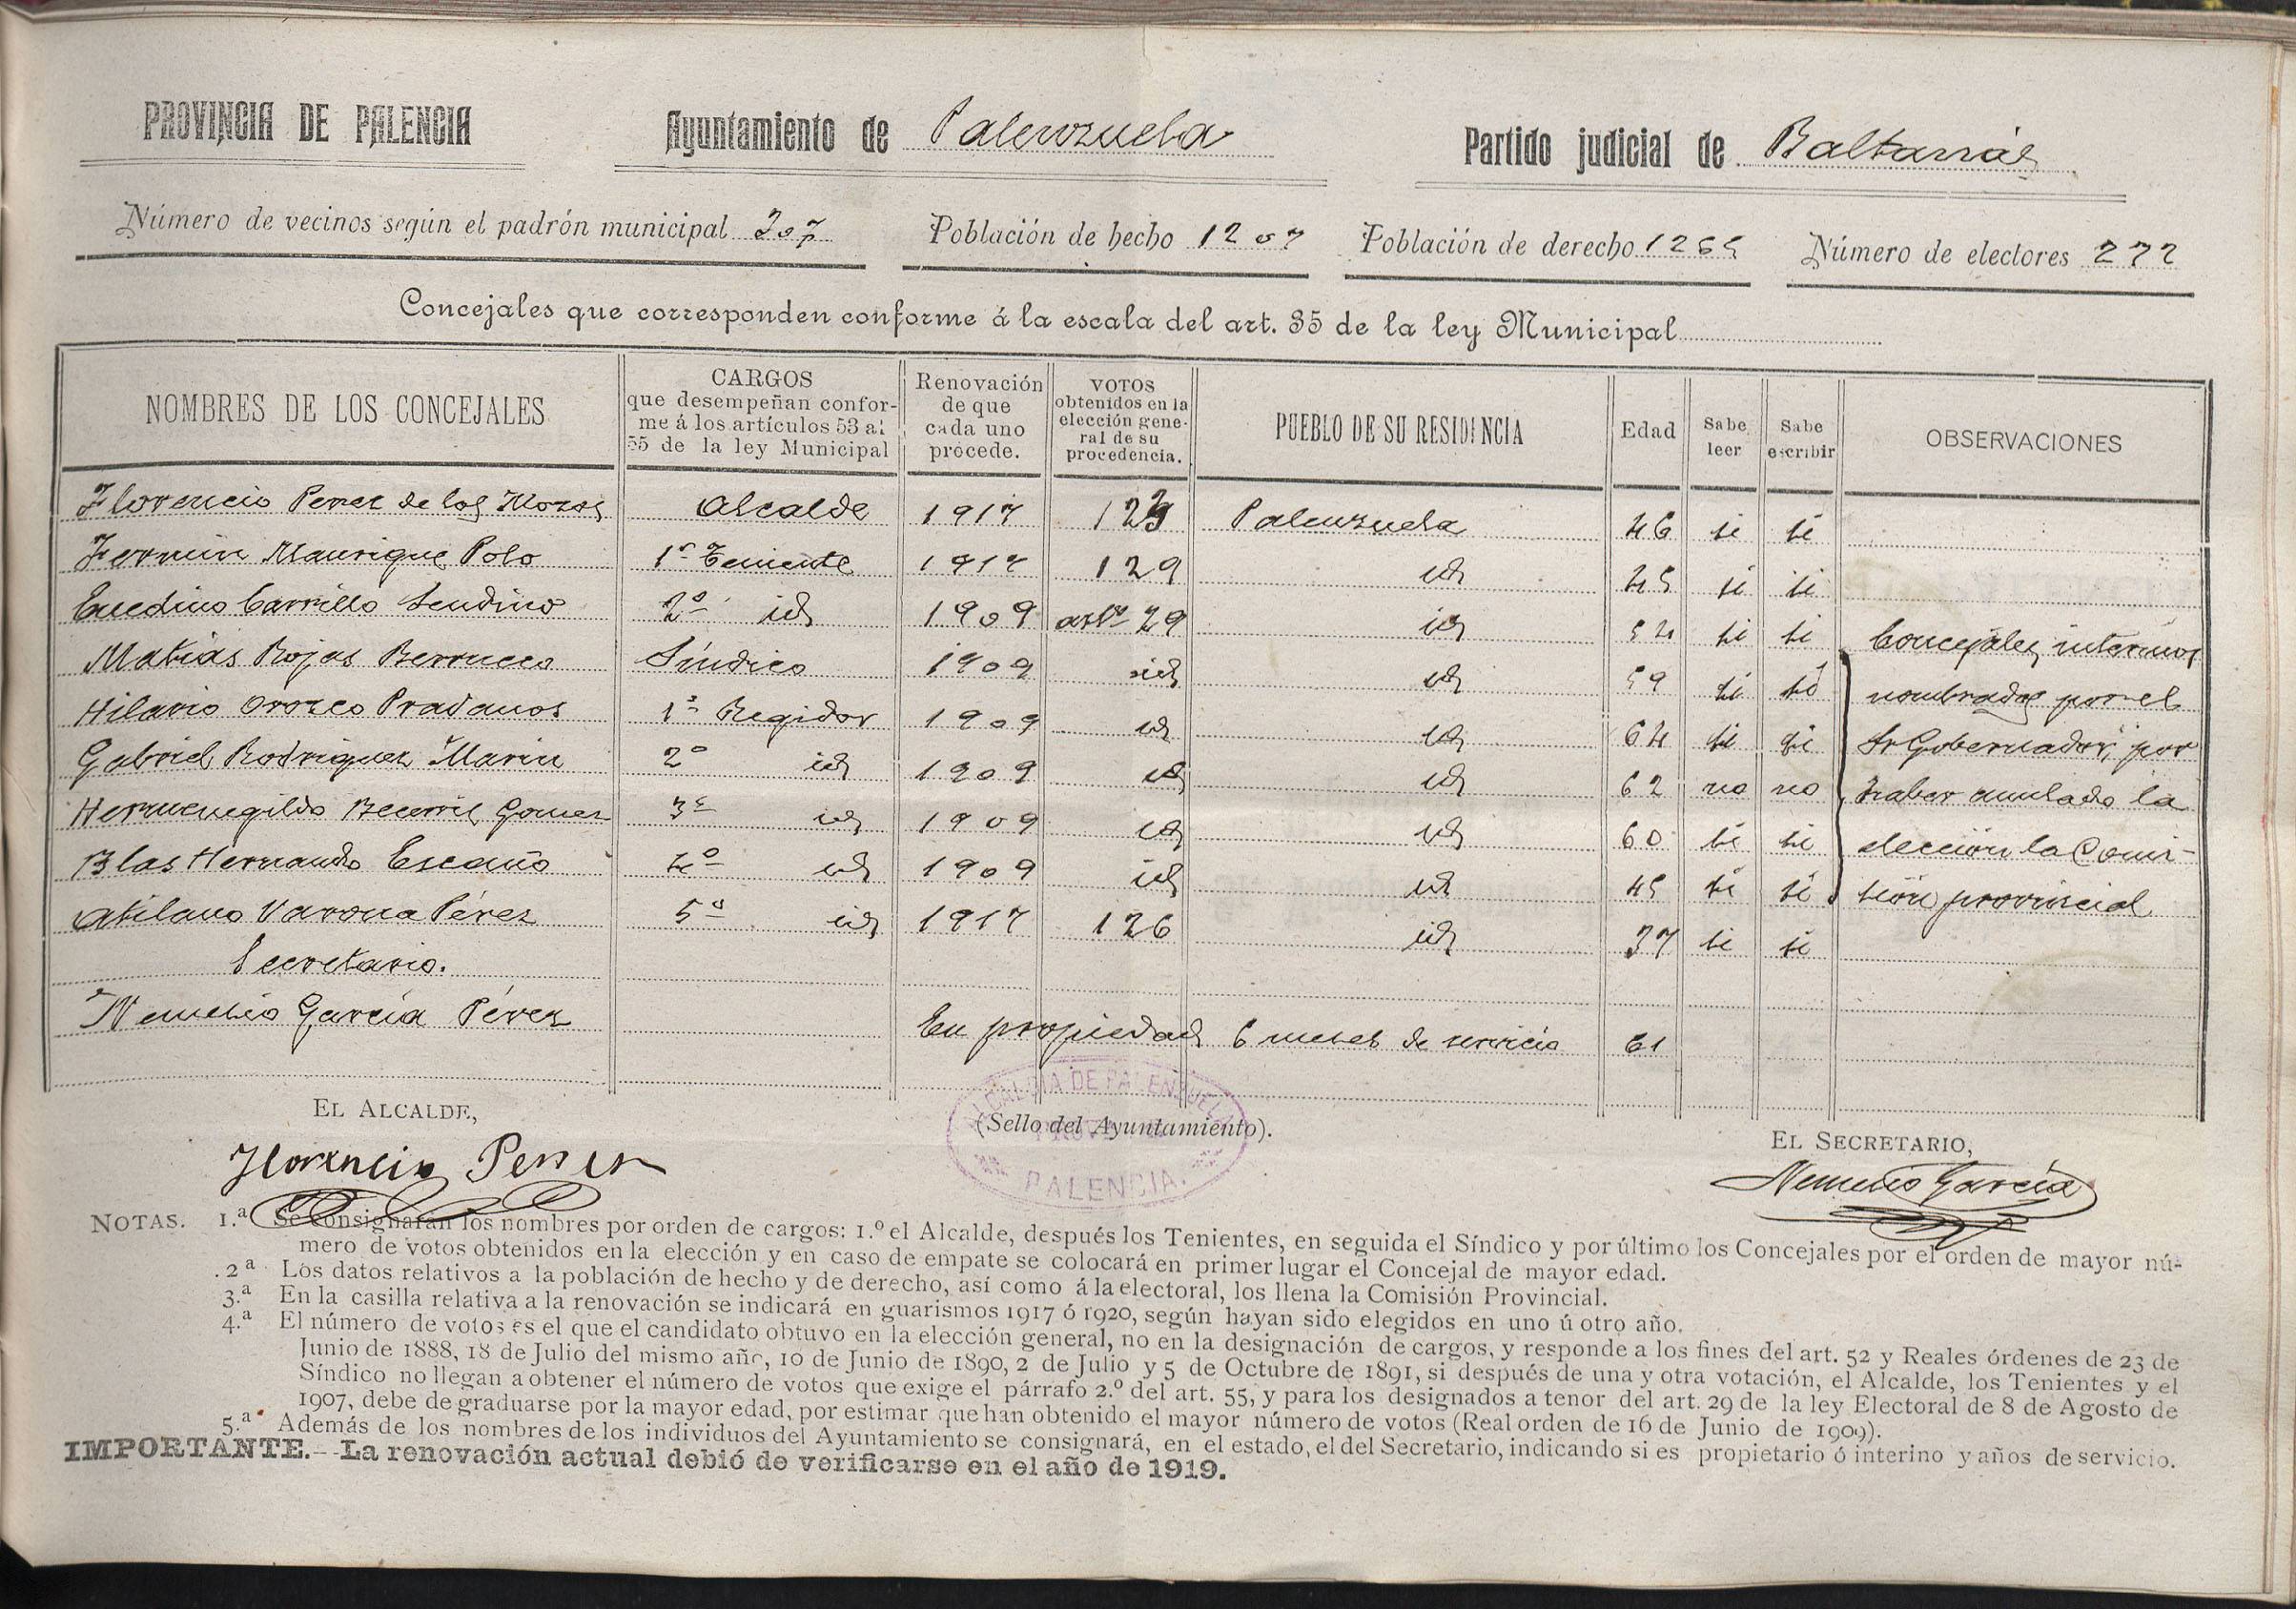 PROVINCIA DE PALENCIA Ayuntamiento de Palenzuela Partido judicial de Baltanás
Número de vecinos según el padrón municipal 307 Población de hecho 1207 Población de derecho 1255 Número de electores 272
Concejales que corresponden conforme á la escala del art. 35 de la ley Municipal
NOMBRES DE LOS CONCEJALES
CARGOS
que desempeñan confor-
me á los artículos 53 al
55 de la ley Municipal
Renovación
de que
cada uno
procede.
VOTOS
obtenidos en la
elección gene-
ral de su
procedencia.
PUEBLO DE SU RESIDENCIA
Edad
Sabe
leer
Sabe
escribir
OBSERVACIONES
Florencio Perez de los Mozos Alcalde 1917 129 Palenzuela 46 si si
Fermin Manrique Polo 1er Teniente 1917 129 id 45 si si
Eucdino Carrillo Sendino 2º id 1909 artº 29 id 54 si si Concejales interinos
Matias Rojas Berrueco Síndico 1909 id id 59 si si nombrados por el
Hilario Orozco Pradanos 1º Regidor 1909 id id 64 si si Sr Gobernador, por
Gabriel Rodriguez Marin 2º id 1909 id id 62 no no haber anulado la
Hermenegildo Becerril Gomez 3º id 1909 id id 60 si si elección la Comi-
Blas Hernando Escaño 4º id 1909 id id 45 si si sión provincial
Atilano Varona Pérez 5º id 1917 126 id 37 si si
Secretario.
Nemesio García Pérez En propiedad 6 meses de servicio 61
EL ALCALDE,
Florencio Perez
(Sello del Ayuntamiento).
ALCALDIA DE PALENZUELA
PALENCIA.
EL SECRETARIO,
Nemesio García
NOTAS. 1.ª Se consignarán los nombres por orden de cargos: 1.º el Alcalde, después los Tenientes, en seguida el Síndico y por último los Concejales por el orden de mayor nú-
mero de votos obtenidos en la elección y en caso de empate se colocará en primer lugar el Concejal de mayor edad.
2ª Los datos relativos a la población de hecho y de derecho, así como á la electoral, los llena la Comisión Provincial.
3.ª En la casilla relativa a la renovación se indicará en guarismos 1917 ó 1920, según hayan sido elegidos en uno ú otro año.
4.ª El número de votos es el que el candidato obtuvo en la elección general, no en la designación de cargos, y responde a los fines del art. 52 y Reales órdenes de 23 de
Junio de 1888, 18 de Julio del mismo año, 10 de Junio de 1890, 2 de Julio y 5 de Octubre de 1891, si después de una y otra votación, el Alcalde, los Tenientes y el
Síndico no llegan a obtener el número de votos que exige el párrafo 2.º del art. 55, y para los designados a tenor del art. 29 de la ley Electoral de 8 de Agosto de
1907, debe de graduarse por la mayor edad, por estimar que han obtenido el mayor número de votos (Real orden de 16 de Junio de 1909).
5.ª Además de los nombres de los individuos del Ayuntamiento se consignará, en el estado, el del Secretario, indicando si es propietario ó interino y años de servicio.
IMPORTANTE.—La renovación actual debió de verificarse en el año de 1919.